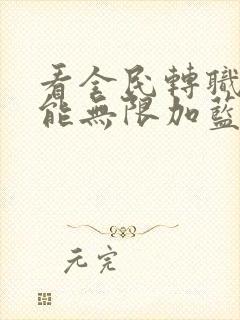 看全民轉職
能無限加藍
元完